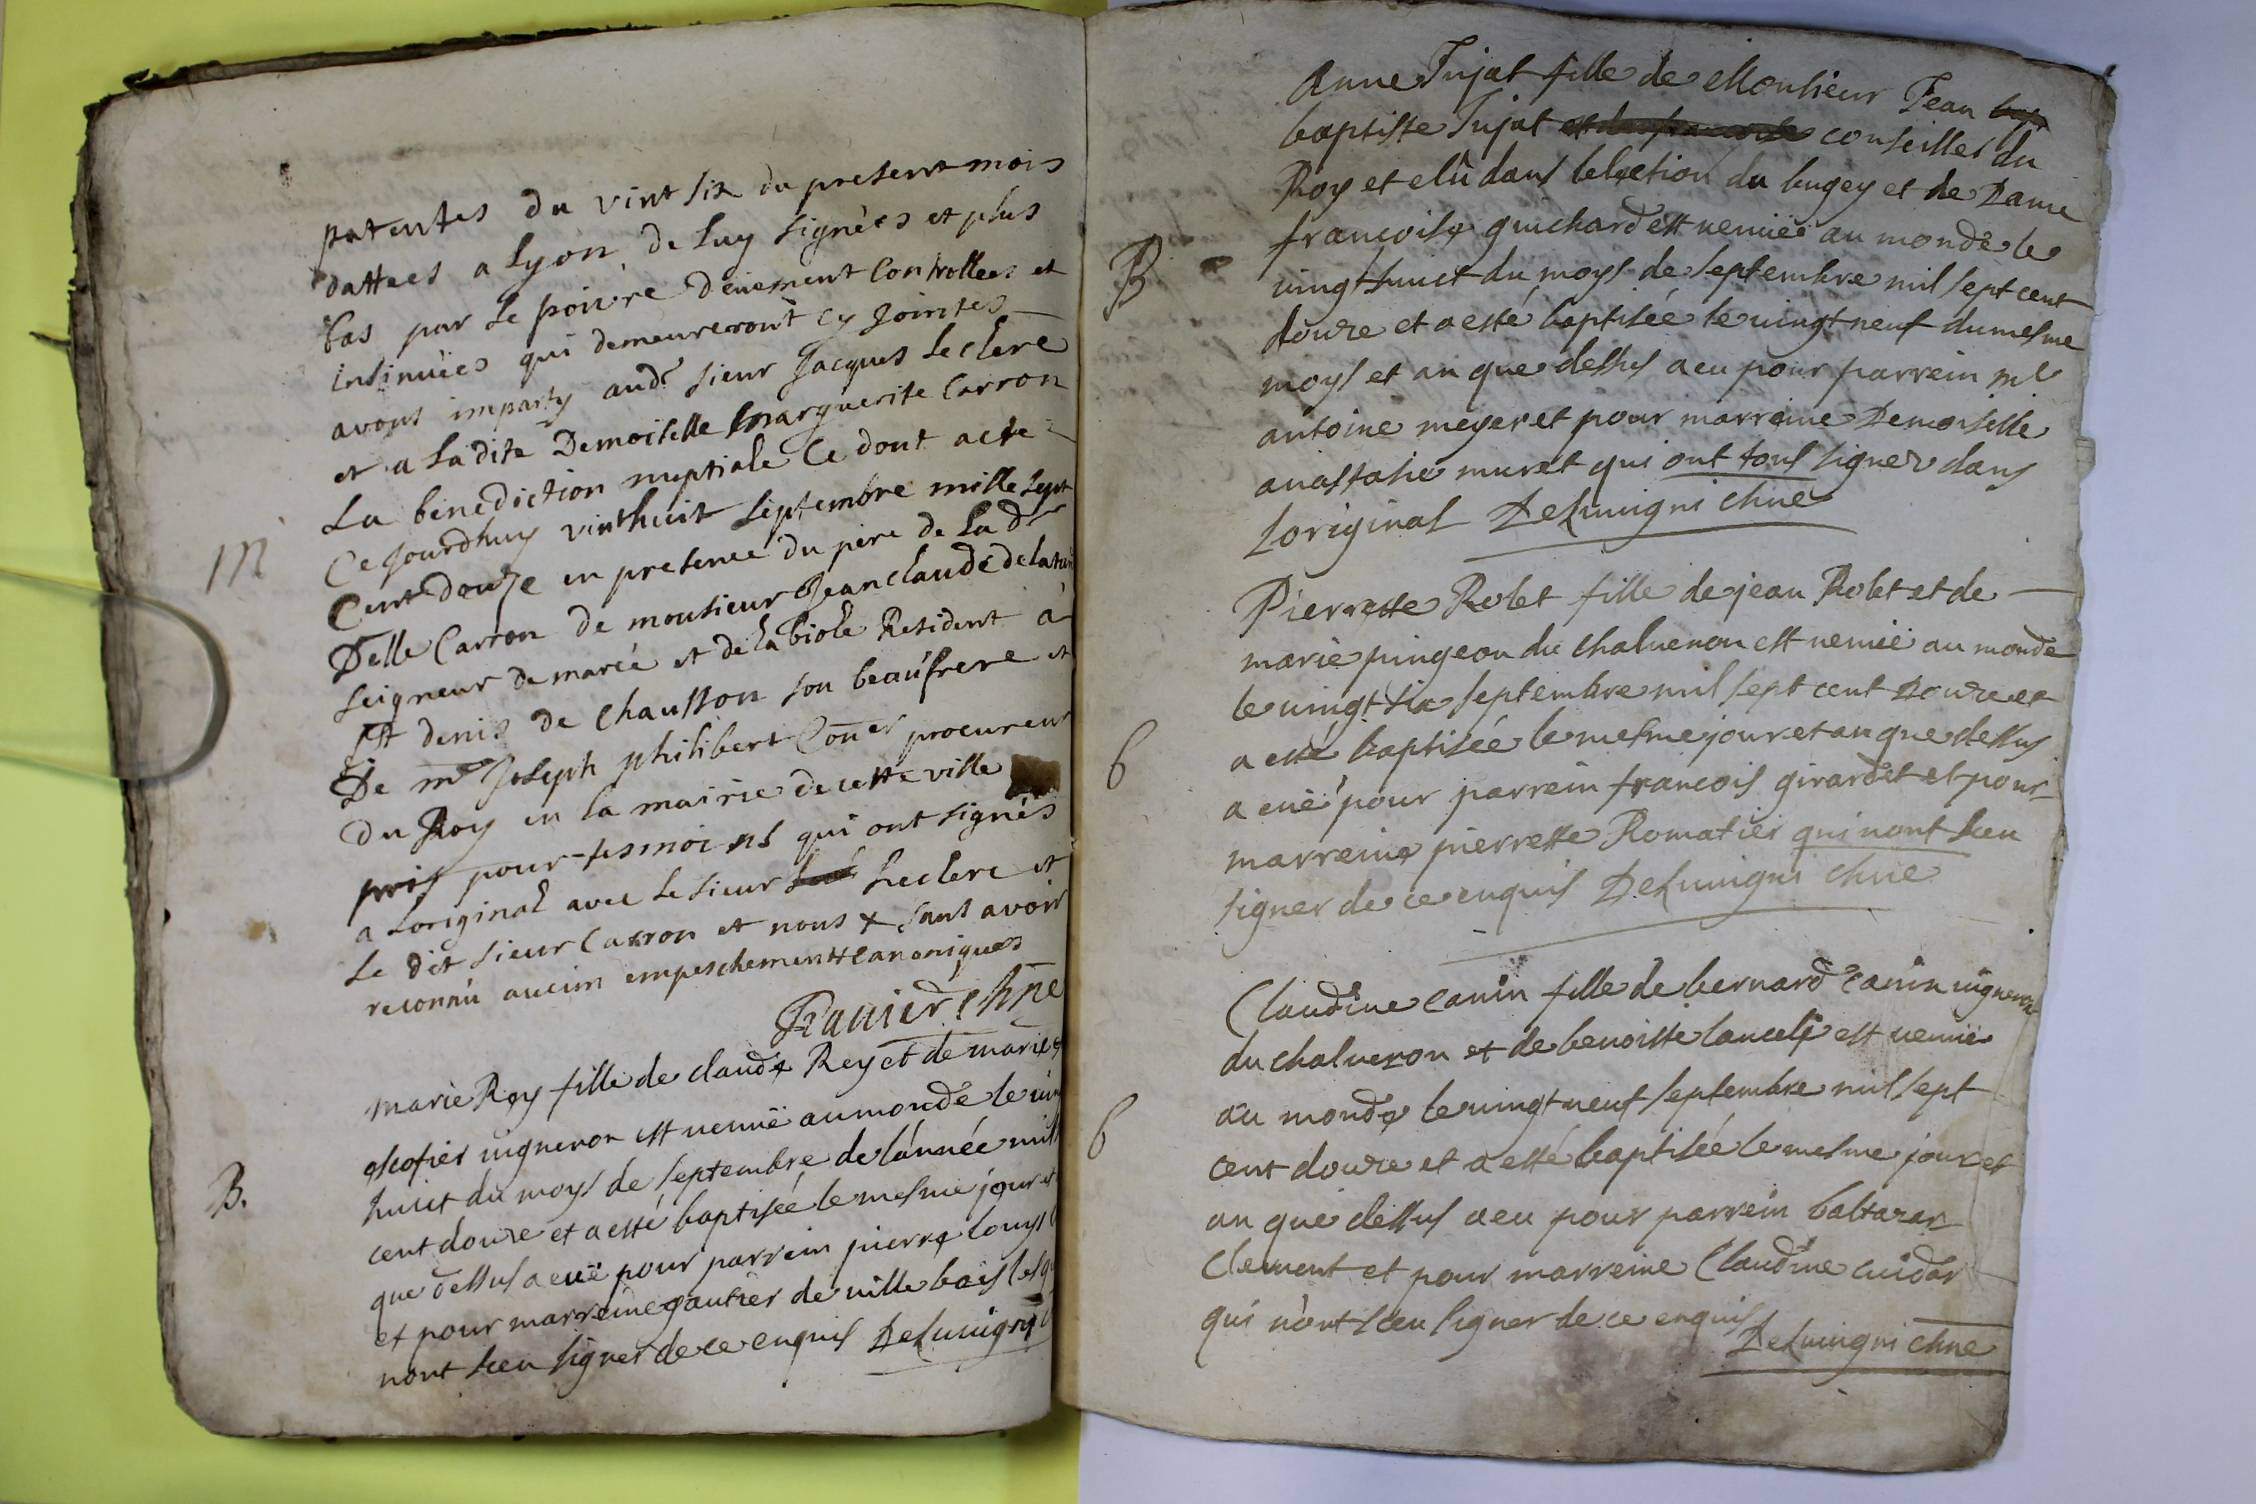 patentes du vint six du present mois
dattees a Lyon de luy signées et plus
bas par Le poivre deüement Controllees et
insinuées qui demeureront cy Jointes
avons imparty aud.t sieur Jacques Leclerc
et a ladite Demoiselle marguerite Carron
La benediction nuptiale Ce dont acte
M
Ce Jourdhuy vinthuit septembre mille sept
Cent Douze en presence du pere de la d.te
Delle Carron de monsieur Jeanclaude
seigneur de marée et de la biole Resident à
St denis de Chausson son beaufrere et
De m.re Joseph philibert Con.er procureur
Du Roy en la mairie de cette ville
pris pour tesmoins qui ont signés
a Loriginal avec le sieur Leclerc et
Le dit sieur Carron et nous + sans avoir
reconnu aucun empeschement canoniques
chne
marie Rey fille de claude Rey et de marie
escofier uigneron est uenuë au monde le
huict du moys de septembre de lannée mil
B.
cent douze et a esté baptisée le mesme jour et
que dessus a euë pour parrein pierre louys
et pour marreine gautier de uille bois
nont sceu signer de ce enquis Deluuigni
Anne Tujat fille de Monsieur Jean
baptiste Tujat conseiller du
Roy et elû dans lelection du bugey et de Dame
francoise guichard est uenuëe au monde le
B
uingt huict du moys de septembre mil sept cent
douze et a esté baptisée le uingt neuf du mesme
moys et an que dessus a eu pour parrein mr
antoine meyer et pour marreine Demoiselle
anastasie muret qui ont tous signer dans
Loriginal Deluuigni chne
Pierrette Robet fille de jean Robet et de
marie pingeon du chaluenon est uenuë au monde
le uingt six septembre mil sept cent Douze et
a esté baptisée le mesme jour et an que dessus
b
a euë pour parrein francois girardet et pour
marreine pierrette Romatier qui nont sceu
signer de ce enquis Deluuigni chne
Claudine canin fille de bernard canin uigneron
du chaluenon et de benoiste lancelj est uenuë
au monde le uingt neuf septembre mil sept
b
cent douze et a esté baptisée le mesme jour et
an que dessus a eu pour parrein baltazar
Clement et pour marreine Claudine cuidar
qui n'ont sceu signer de ce enquis
Deluuigni chne